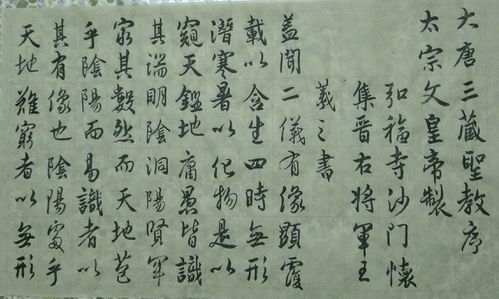 大唐三藏聖教序
太宗文皇帝製
弘福寺沙門懷
集晉右將軍王
羲之書
蓋聞二儀有像顯覆
載以含生四時無形
潛寒暑以化物是以
窺天鑑地庸愚皆識
其端明陰洞陽賢
窮其數然而天地苞
乎陰陽而易識者以
其有像也陰陽處乎
天地難窮者以無形